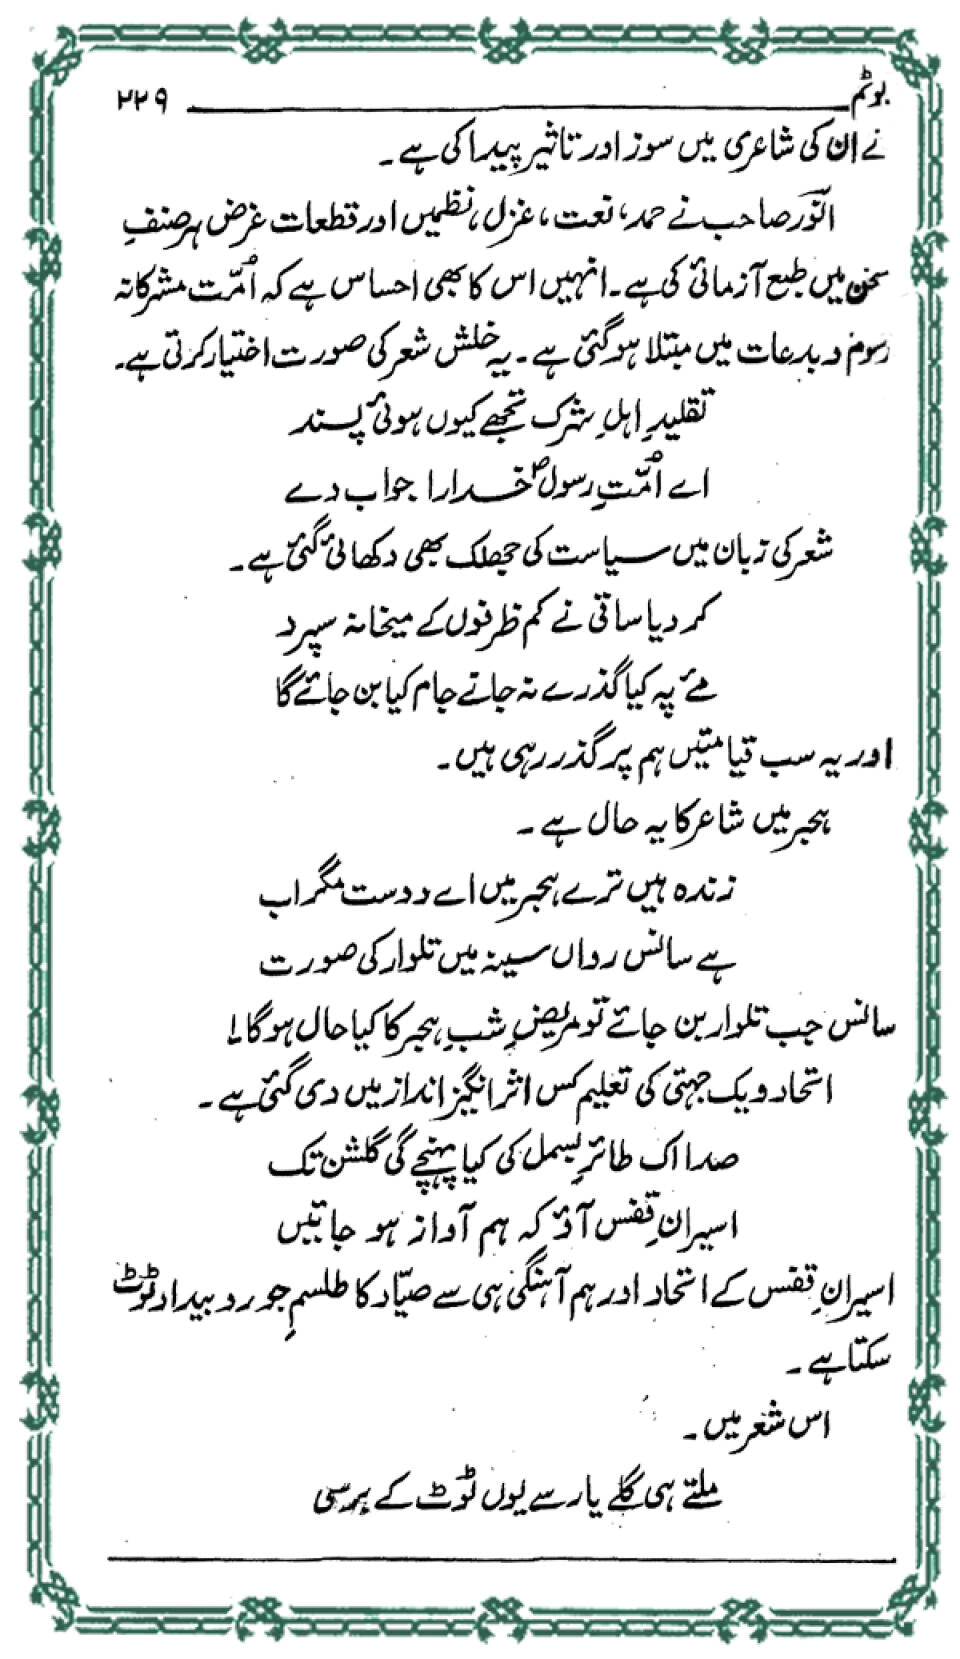 بوٹم ۲۲۹
نے ان کی شاعری میں سوز اور تاثیر پیدا کی ہے۔
انورؔ صاحب نے حمد، نعت، غزل، نظمیں اور قطعات غرض ہر صنفِ
سخن میں طبع آزمائی کی ہے۔ انہیں اس کا بھی احساس ہے کہ اُمّت مشرکانہ
رسوم و بدعات میں مبتلا ہوگئی ہے۔ یہ خلش شعر کی صورت اختیار کرتی ہے۔
تقلیدِ اہلِ شرک تجھے کیوں ہوئی پسند
اے اُمّتِ رسولؐ خدارا جواب دے
شعر کی زبان میں سیاست کی جھلک بھی دکھائی گئی ہے۔
کر دیا ساقی نے کم ظرفوں کے میخانہ سپرد
مئے پہ کیا گذرے نہ جانے جام کیا بن جائے گا
اور یہ سب قیامتیں ہم پر گذر رہی ہیں۔
ہجر میں شاعر کا یہ حال ہے۔
زندہ ہیں ترے ہجر میں اے دوست مگر اب
ہے سانس رواں سینہ میں تلوار کی صورت
سانس جب تلوار بن جائے تو مریضِ شبِ ہجر کا کیا حال ہوگا!
اتحاد و یک جہتی کی تعلیم کس اثر انگیز انداز میں دی گئی ہے۔
صدا اک طائرِ بسمل کی کیا پہنچے گی گلشن تک
اسیرانِ قفس آؤ کہ ہم آواز ہو جائیں
اسیرانِ قفس کے اتحاد اور ہم آہنگی ہی سے صیّاد کا طلسمِ جور و بیداد ٹوٹ
سکتا ہے۔
اس شعر میں۔
ملتے ہی گلے یار سے یوں ٹوٹ کے برسی